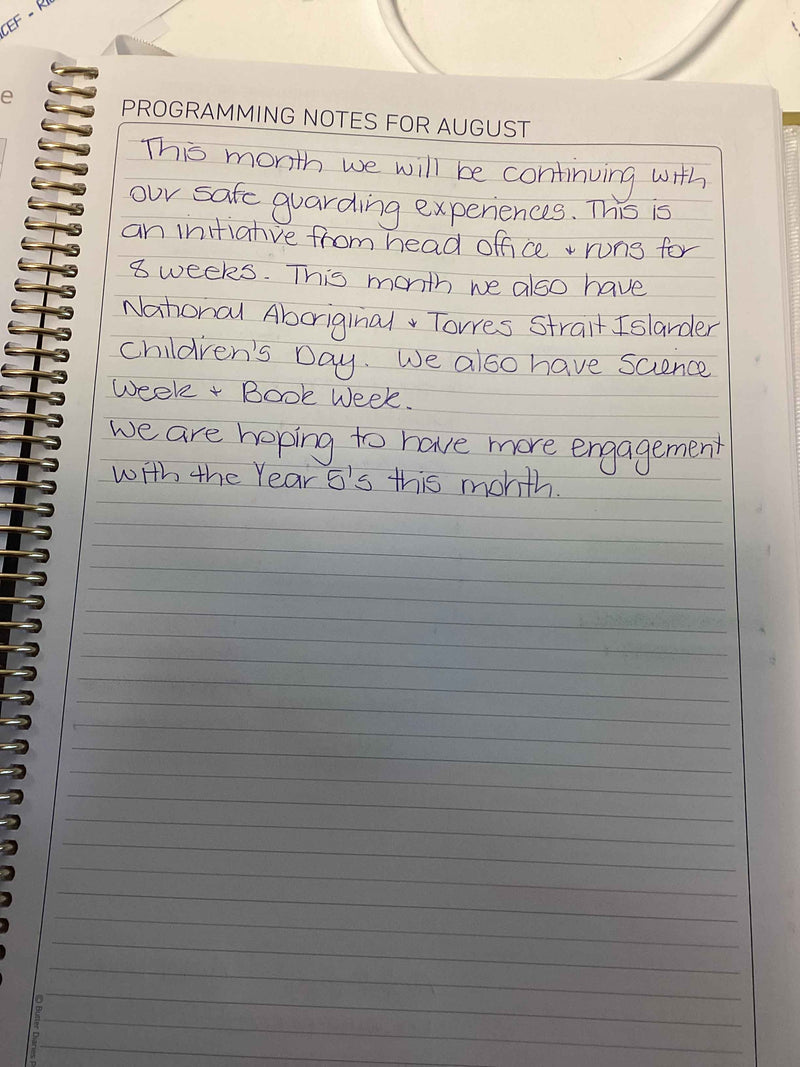 CEF - RI
e
PROGRAMMING NOTES FOR AUGUST
This month we will be continuing with
our safe guarding experiences. This is
an initiative from head office + runs for
8 weeks. This month we also have
National Aboriginal + Torres Strait Islander
Children's Day. We also have Science
Week + Book Week.
We are hoping to have more engagement
with the Year 5's this month.
© Butler Diaries P